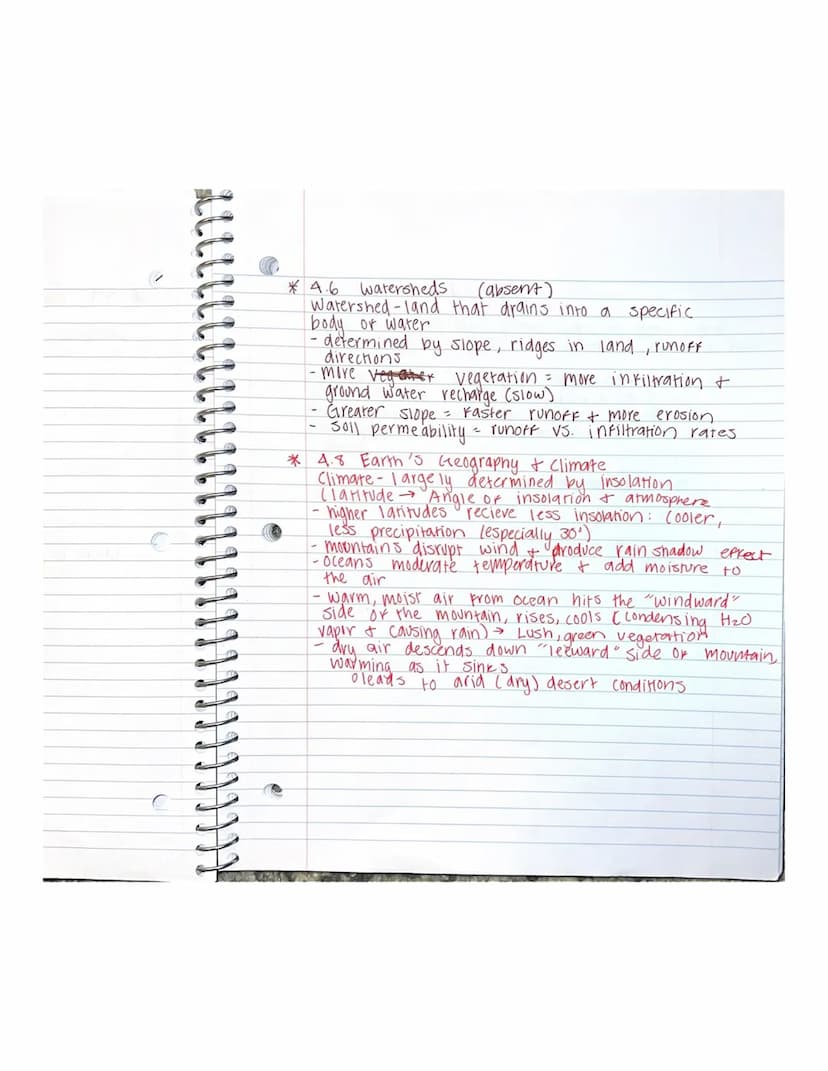 * 4.6 Watersheds (absent)
Watershed - land that drains into a specific
body of water
- determined by slope, ridges in land, runoff
directions
- more vegetation = more infiltration +
ground water recharge (slow)
- Greater slope = faster runoff + more erosion
- Soil permeability = runoff vs. infiltration rates
* 4.8 Earth's Geography + Climate
Climate - largely determined by insolation
(latitude → Angle of insolation + atmosphere
- higher latitudes recieve less insolation: cooler,
less precipitation (especially 30°)
- mountains disrupt wind + produce rain shadow effect
- oceans moderate temperature + add moisture to
the air
- warm, moist air from ocean hits the "windward"
side of the mountain, rises, cools (condensing H2O
vapor + causing rain) → Lush, green vegetation
- dry air descends down "leeward" side of mountain,
warming as it sinks
o leads to arid (dry) desert conditions